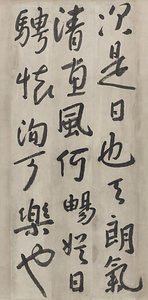 次是日也天朗氣
清惠風何暢娛目
騁懷洵可樂也